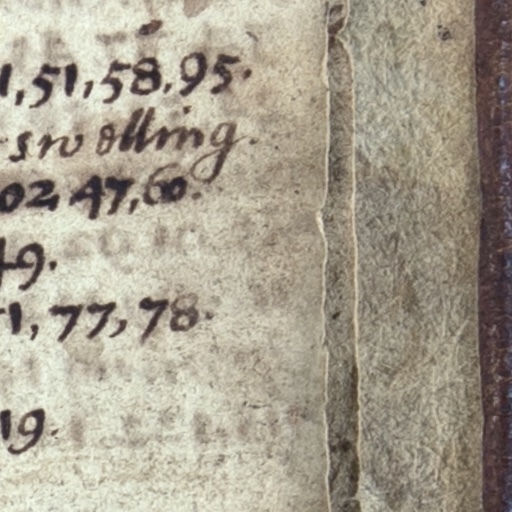 1, 51, 58, 95.
swelling.
02, 47, 60.
49.
51, 77, 78.
19.